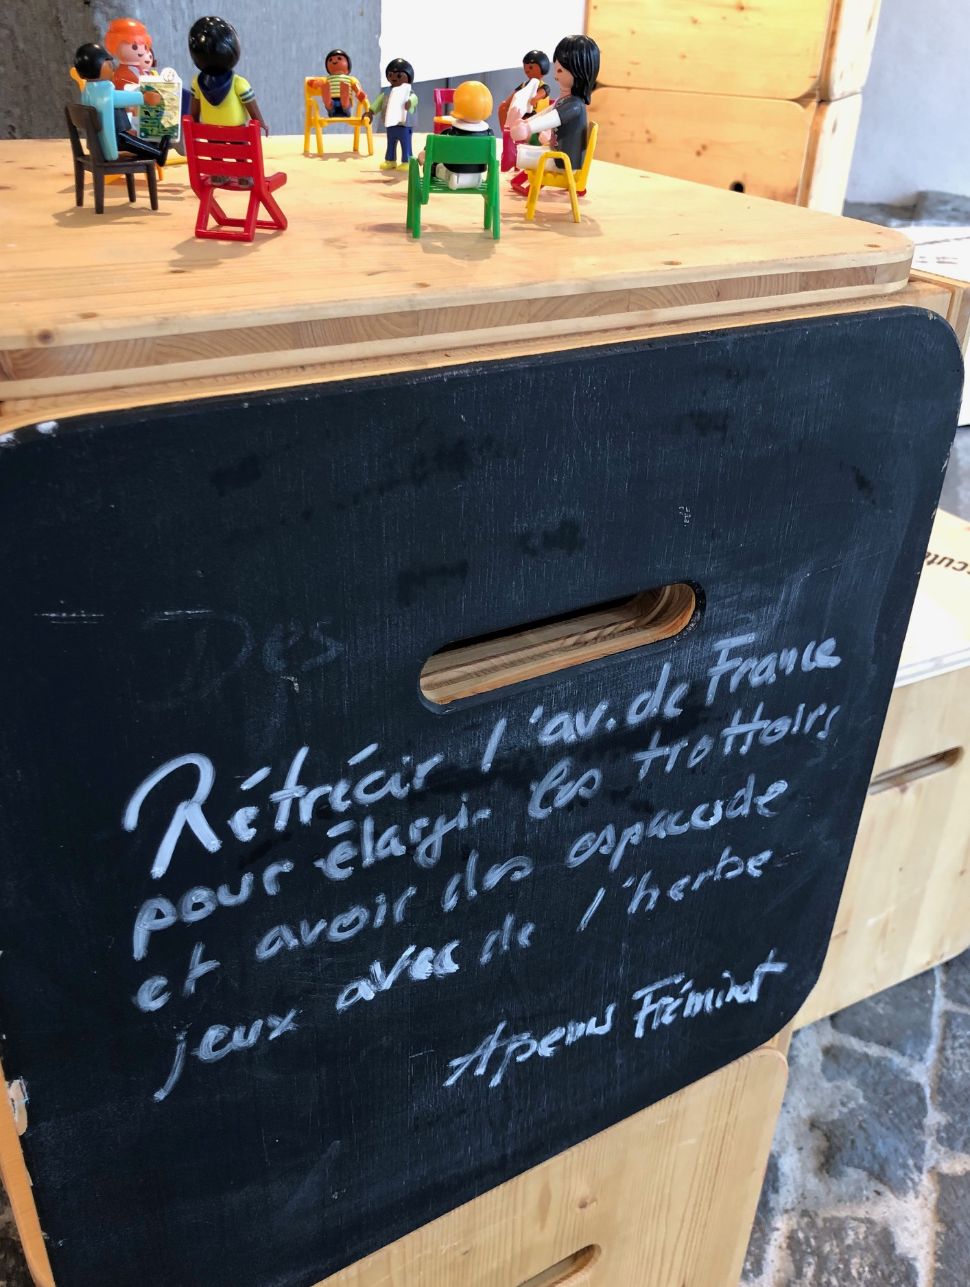 Des
Rétrécir l'av. de France
pour élargir les trottoirs
et avoir des espaces de
jeux avec de l'herbe
Aperus Fréminet